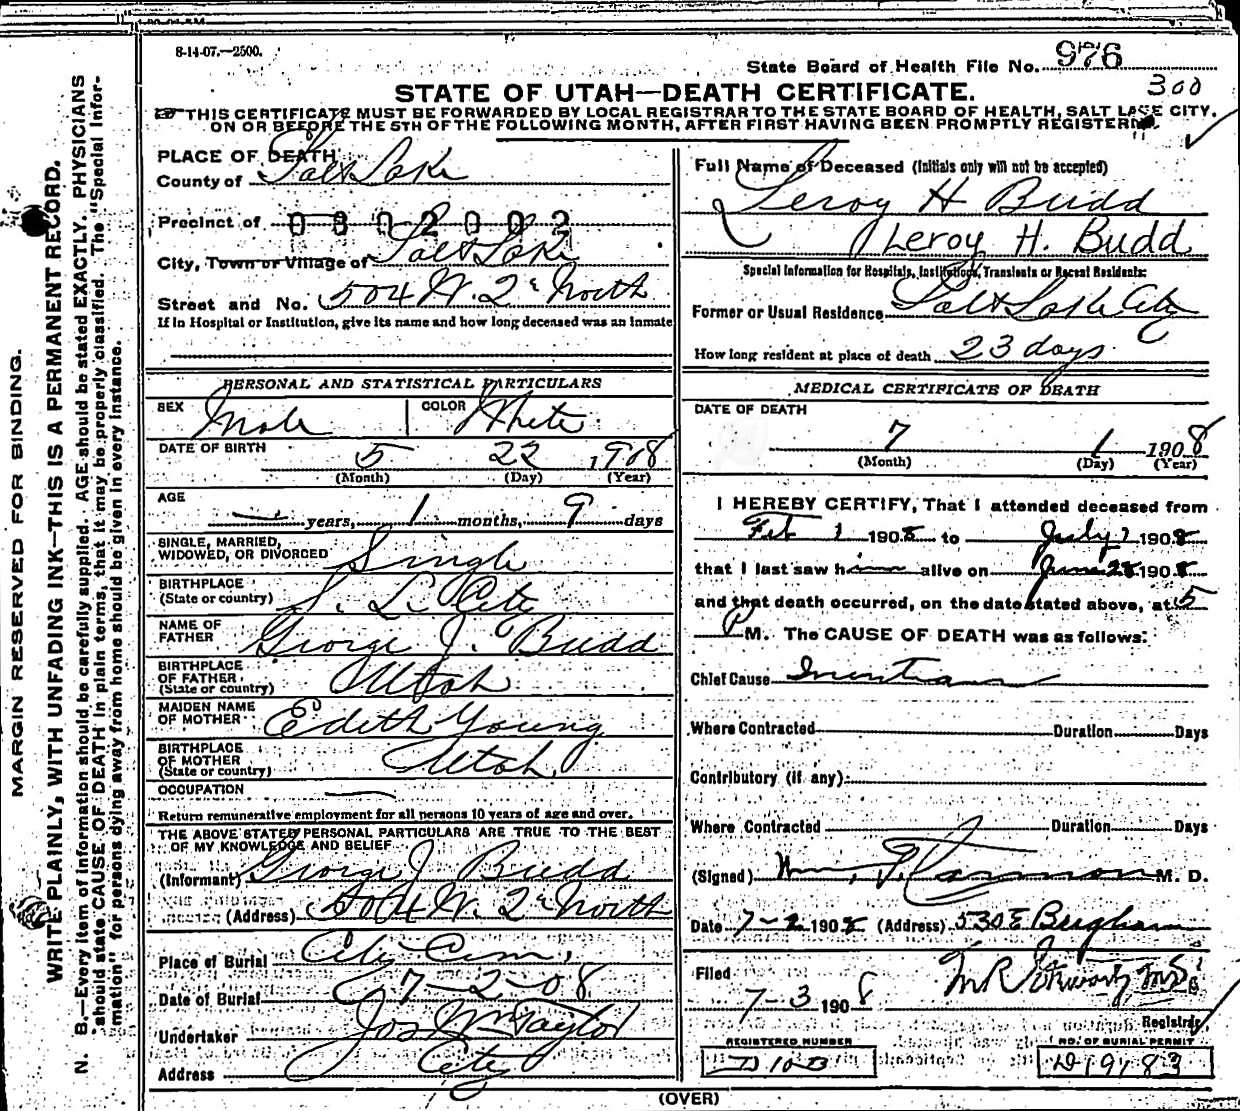 8-14-07.—2500.
State Board of Health File No. 976
300
STATE OF UTAH—DEATH CERTIFICATE.
THIS CERTIFICATE MUST BE FORWARDED BY LOCAL REGISTRAR TO THE STATE BOARD OF HEALTH, SALT LAKE CITY,
ON OR BEFORE THE 5TH OF THE FOLLOWING MONTH, AFTER FIRST HAVING BEEN PROMPTLY REGISTERED.
PLACE OF DEATH
County of Salt Lake
Precinct of 0302002
City, Town or Village of Salt Lake
Street and No. 504 W. 2d North
If in Hospital or Institution, give its name and how long deceased was an inmate
PERSONAL AND STATISTICAL PARTICULARS
SEX Male COLOR White
DATE OF BIRTH 5 22 1908
(Month) (Day) (Year)
AGE
— years, 1 months, 9 days
SINGLE, MARRIED,
WIDOWED, OR DIVORCED Single
BIRTHPLACE
(State or country) S. L. City
NAME OF
FATHER George J. Budd
BIRTHPLACE
OF FATHER
(State or country) Utah
MAIDEN NAME
OF MOTHER Edith Young
BIRTHPLACE
OF MOTHER
(State or country) Utah
OCCUPATION —
Return remunerative employment for all persons 10 years of age and over.
THE ABOVE STATED PERSONAL PARTICULARS ARE TRUE TO THE BEST
OF MY KNOWLEDGE AND BELIEF
(Informant) George J Budd
(Address) 504 W. 2d North
Place of Burial City Cem,
Date of Burial 7-2-08
Undertaker Jos Wm Taylor
Address City
Full Name of Deceased (Initials only will not be accepted)
Leroy H Budd
Leroy H. Budd
Special Information for Hospitals, Institutions, Transients or Recent Residents:
Former or Usual Residence Salt Lake City
How long resident at place of death 23 days
MEDICAL CERTIFICATE OF DEATH
DATE OF DEATH
7 1 1908
(Month) (Day) (Year)
I HEREBY CERTIFY, That I attended deceased from
Feb 1 1908 to July 1 1908
that I last saw him alive on June 28 1908
and that death occurred, on the date stated above, at 5
P M. The CAUSE OF DEATH was as follows:
Chief Cause Inanition
Where Contracted Duration Days
Contributory (if any):
Where Contracted Duration Days
(Signed) Wm. M. D.
Date 7-2 1908 (Address) 530 E
Filed
7-3 1908 M R Stewart M.D.
Registrar
REGISTERED NUMBER
NO. OF BURIAL PERMIT
D 19183
(OVER)
MARGIN RESERVED FOR BINDING.
WRITE PLAINLY, WITH UNFADING INK—THIS IS A PERMANENT RECORD.
N. B.—Every item of information should be carefully supplied. AGE should be stated EXACTLY. PHYSICIANS
should state CAUSE OF DEATH in plain terms, that it may be properly classified. The "Special Infor-
mation" for persons dying away from home should be given in every instance.